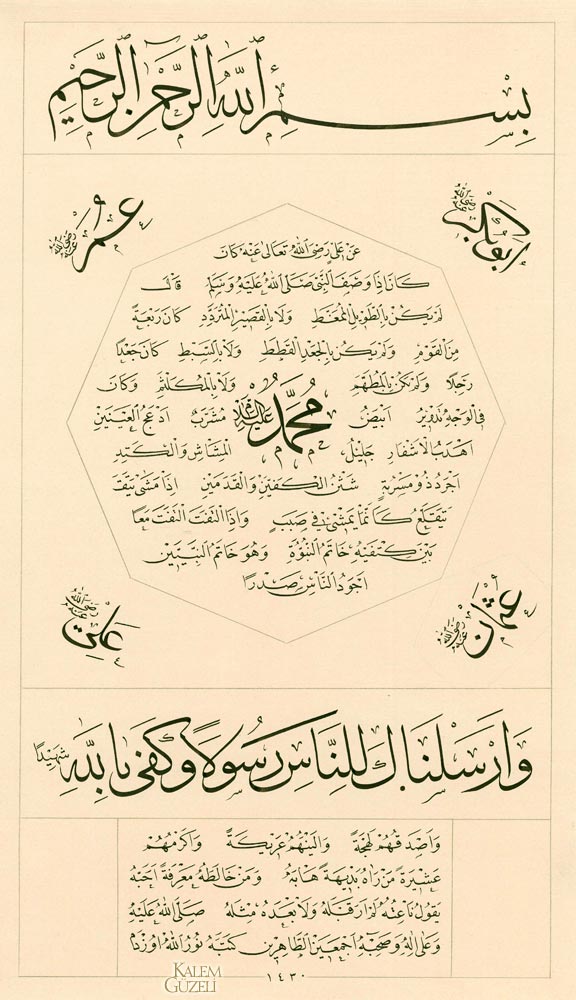 بِسْمِ اللهِ الرَّحْمٰنِ الرَّحِيمِ
ابوبكر رضي الله عنه
عمر رضي الله عنه
عن علي رضي الله تعالى عنه كان
كان اذا وصف النبي صلى الله عليه وسلم قال
لم يكن بالطويل الممغط ولا بالقصير المتردد كان ربعة
من القوم ولم يكن بالجعد القطط ولا بالسبط كان جعدا
رجلا ولم يكن بالمطهم ولا بالمكلثم وكان
محمد عليه السلام
في الوجه تدوير ابيض مشرب ادعج العينين
اهدب الاشفار جليل المشاش والكتد
اجرد ذو مسربة شثن الكفين والقدمين اذا مشى
يتقلع كانما يمشي في صبب واذا التفت التفت معا
بين كتفيه خاتم النبوة وهو خاتم النبيين
اجود الناس صدرا
عثمان رضي الله عنه
علي رضي الله عنه
وارسلناك للناس رسولا وكفى بالله شهيدا
واصدقهم لهجة والينهم عريكة واكرمهم
عشيرة من راه بديهة هابه ومن خالطه معرفة احبه
يقول ناعته لم ار قبله ولا بعده مثله صلى الله عليه
وعلى اله وصحبه اجمعين الطاهرين كتبه نور الله
١٤٣٠
KALEM
GÜZELİ